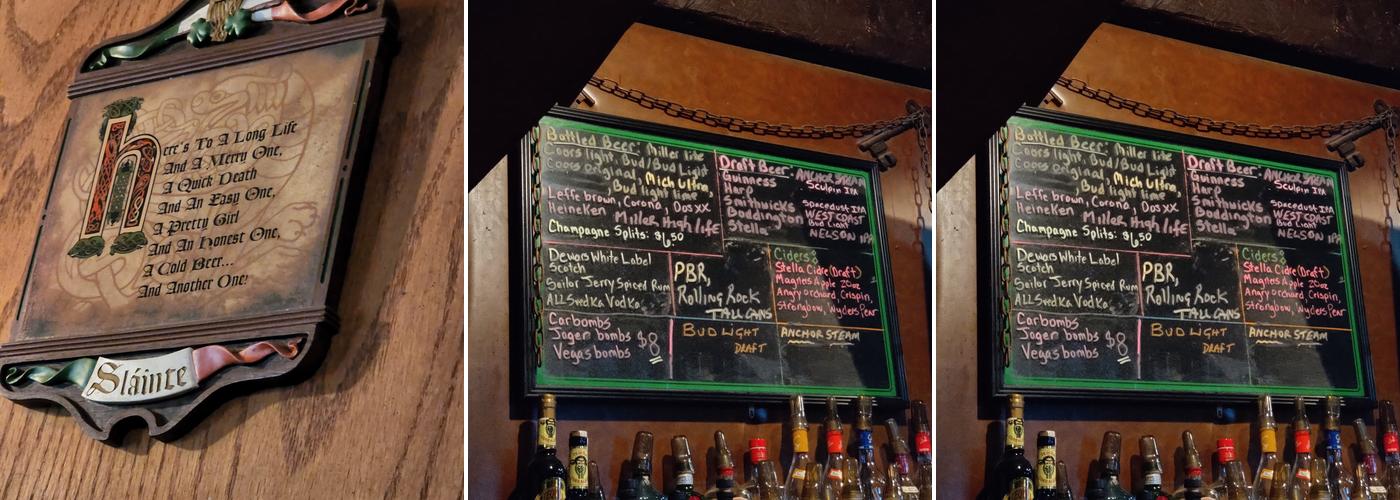 here's To A Long Life
And A Merry One,
A Quick Death
And An Easy One,
A Pretty Girl
And An Honest One,
A Cold Beer...
And Another One!
Sláinte
Bottled Beer: Miller lite
Coors light, Bud/Bud Light
Coors original, Mich Ultra,
Bud light lime
Leffe brown, Corona, Dos XX
Heineken Miller High life
Champagne Splits: $6.50
Draft Beer: ANCHOR STEAM
Guinness Sculpin IPA
Harp
Smithwicks Spacedust IPA
Boddington WEST COAST
Stella Bud Light
NELSON IPA
Dewars White Label
Scotch
Sailor Jerry Spiced Rum
ALL Svedka Vodka
PBR,
Rolling Rock
TALL CANS
Ciders:
Stella Cidre (Draft)
Magners Apple 20oz
Angry orchard, Crispin,
Strongbow, Wyders Pear
Carbombs
Jager bombs $8
Vegas bombs
BUD LIGHT
DRAFT
ANCHOR STEAM
Bottled Beer: Miller lite
Coors light, Bud/Bud Light
Coors original, Mich Ultra,
Bud light lime
Leffe brown, Corona, Dos XX
Heineken Miller High life
Champagne Splits: $6.50
Draft Beer: ANCHOR STEAM
Guinness Sculpin IPA
Harp
Smithwicks Spacedust IPA
Boddington WEST COAST
Stella Bud Light
NELSON IPA
Dewars White Label
Scotch
Sailor Jerry Spiced Rum
ALL Svedka Vodka
PBR,
Rolling Rock
TALL CANS
Ciders:
Stella Cidre (Draft)
Magners Apple 20oz
Angry orchard, Crispin,
Strongbow, Wyders Pear
Carbombs
Jager bombs $8
Vegas bombs
BUD LIGHT
DRAFT
ANCHOR STEAM